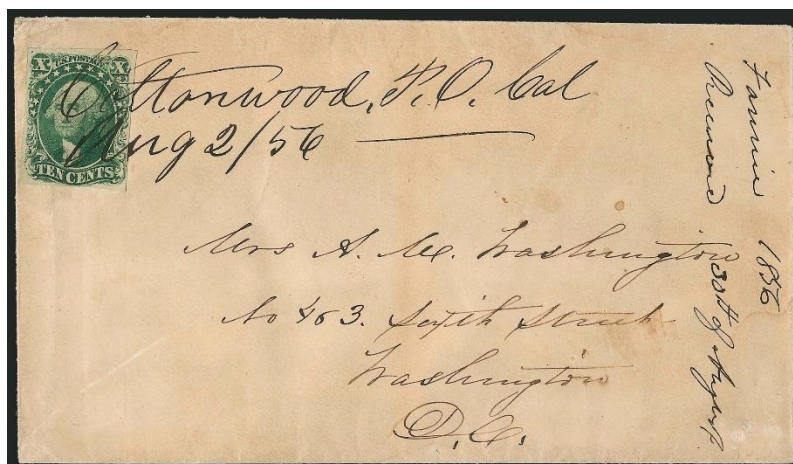 X U.S. POSTAGE X
TEN CENTS
Cottonwood, P.O. Cal
Aug 2/56
Mrs A. M. Washington
No 463. Sixth Street
Washington
D.C.
Fannie 1856
Received 30th of August